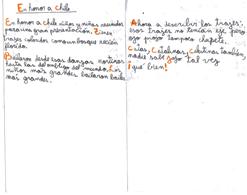 En honor a Chile
En honor a Chile niños y niñas reunidos
para una gran presentación.
trajes coloridos como un bosque recién
florido.
Bailaron desde esas danzas nortinas
hasta las del del mundo. Los
niños mas grandes bailaron baile
mas grande.
Ahora a describir los trajes:
esos trajes no tenían ese pero
ojo tampoco chupete.
tambien,
nadie sal tal vez
¡qué bien!